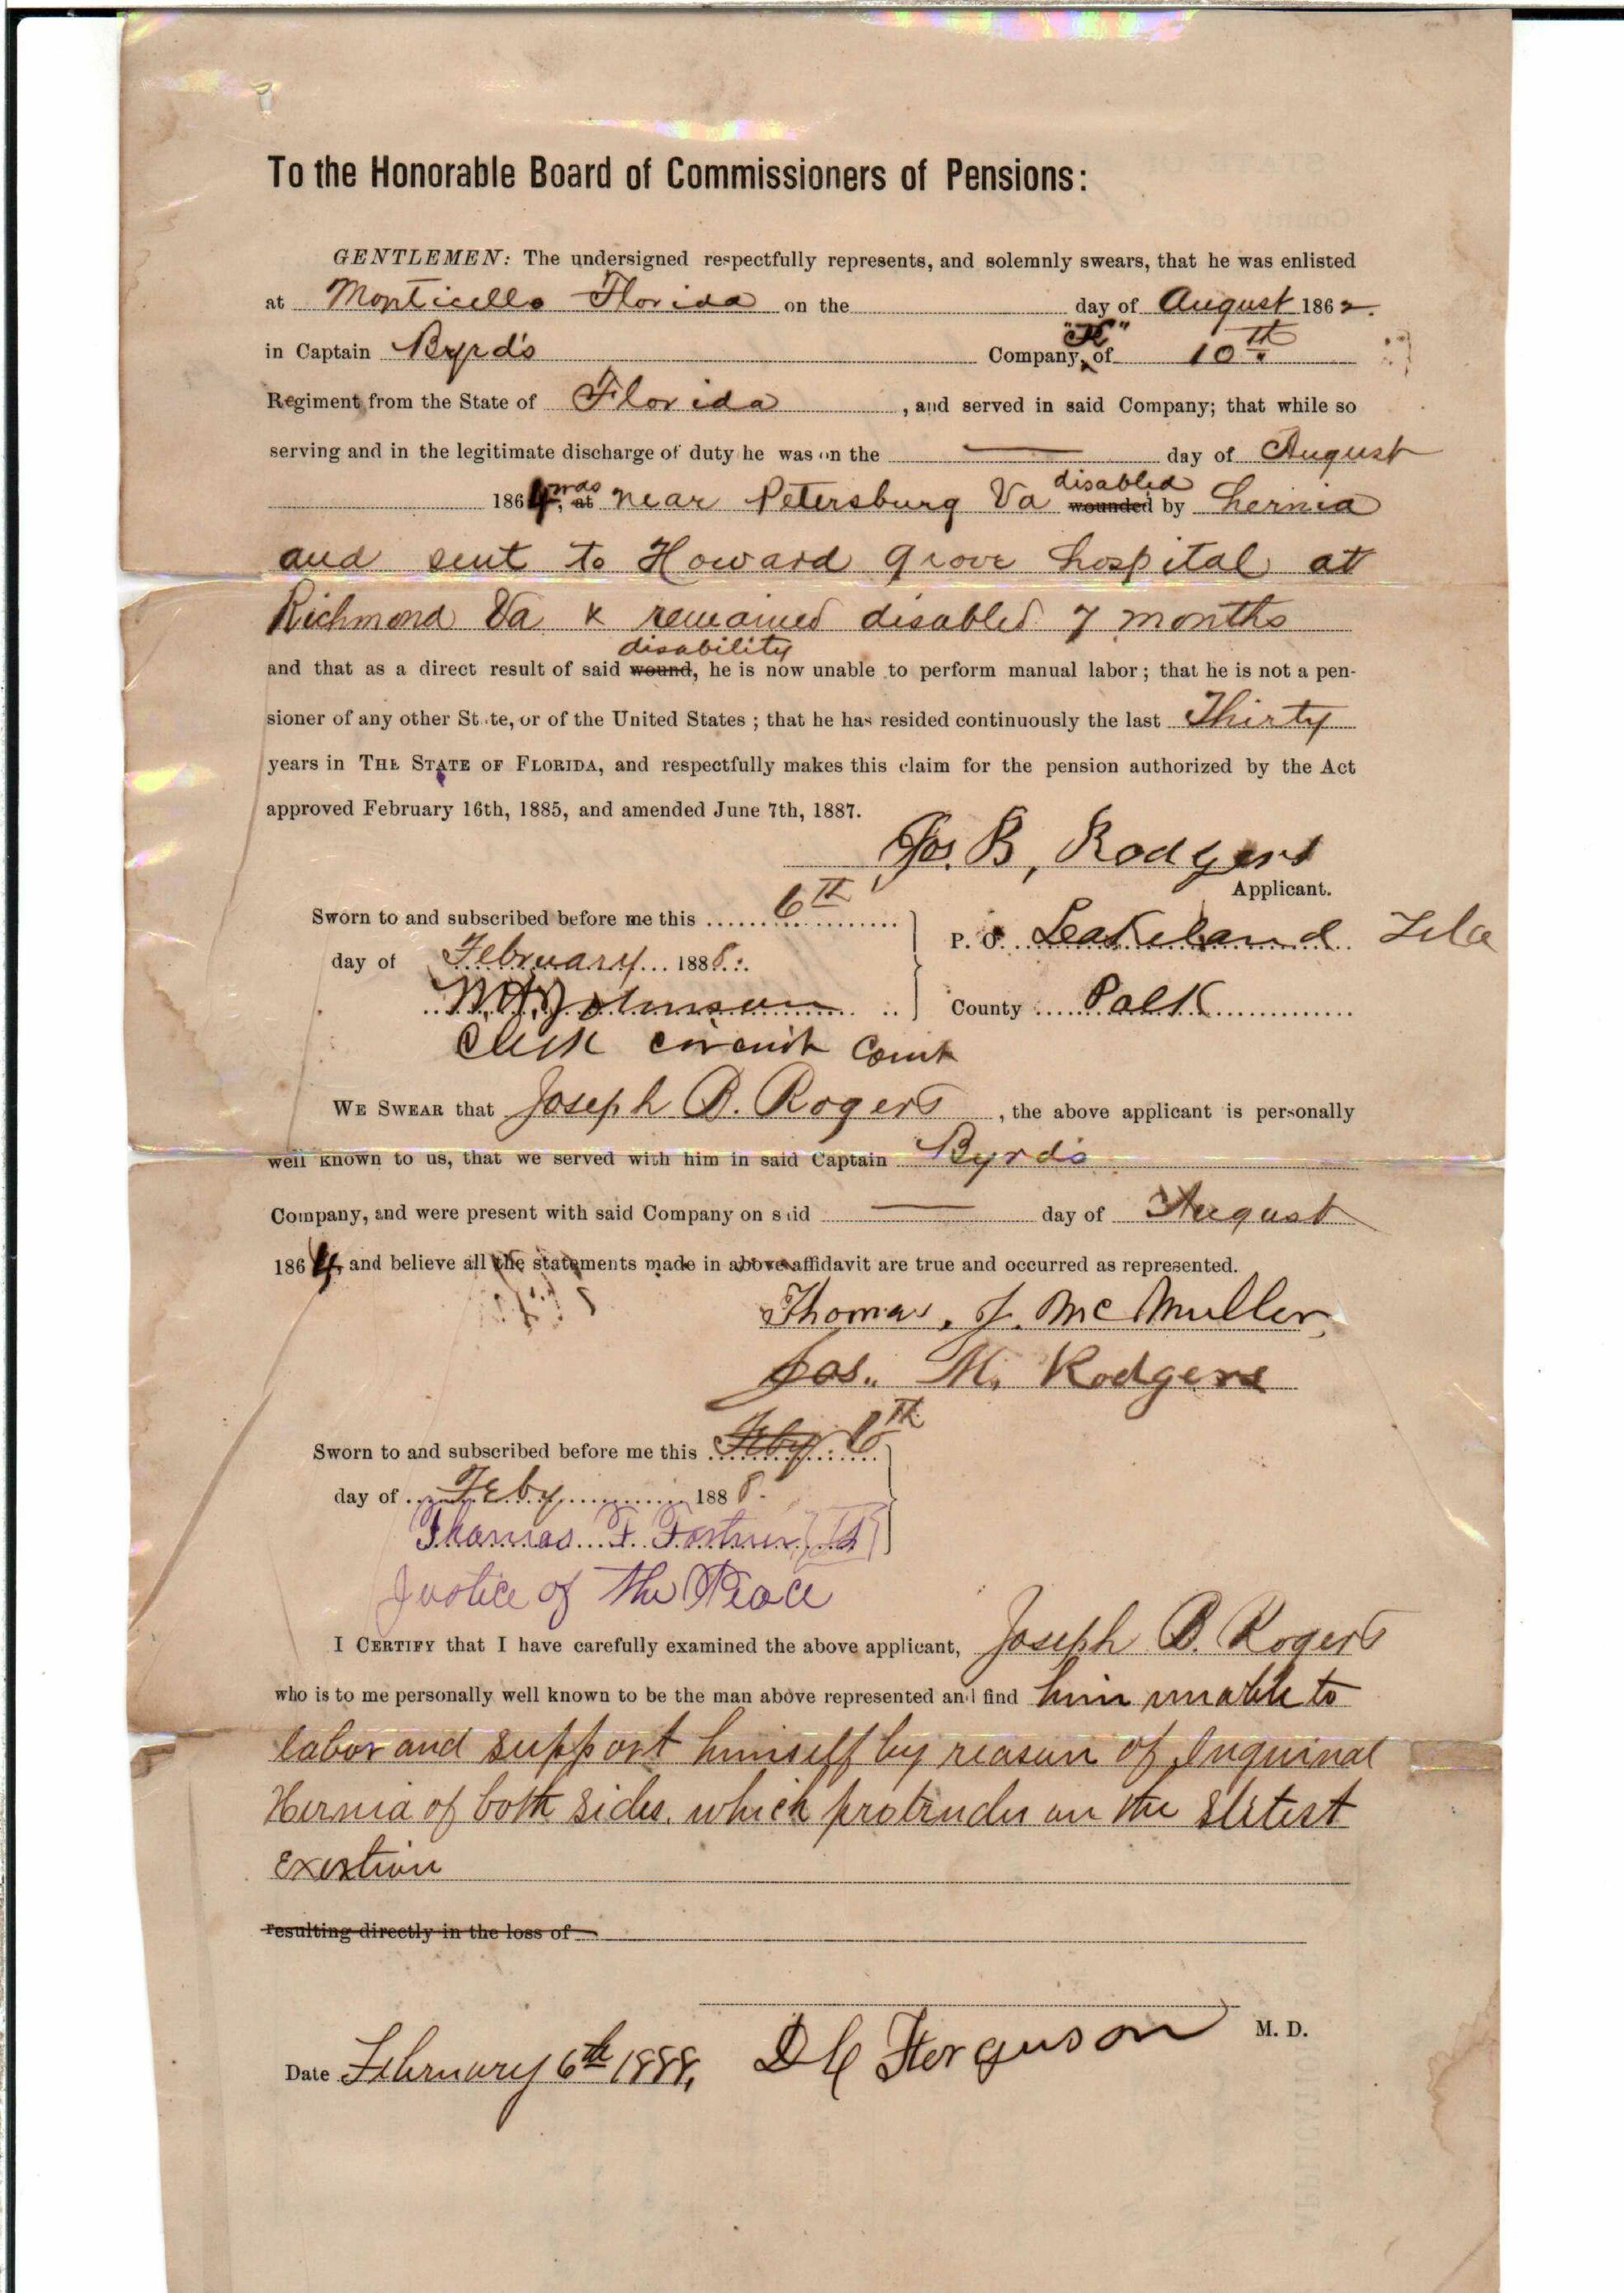 To the Honorable Board of Commissioners of Pensions:
GENTLEMEN: The undersigned respectfully represents, and solemnly swears, that he was enlisted
at Monticello Florida on the day of August 1862.
in Captain Byrd's Company, "K" of 10th
Regiment from the State of Florida, and served in said Company; that while so
serving and in the legitimate discharge of duty he was on the — day of August
1864, was at near Petersburg Va disabled wounded by hernia
and sent to Howard Grove hospital at
Richmond Va & remained disabled 7 months
disability
and that as a direct result of said wound, he is now unable to perform manual labor; that he is not a pen-
sioner of any other State, or of the United States; that he has resided continuously the last Thirty
years in THE STATE OF FLORIDA, and respectfully makes this claim for the pension authorized by the Act
approved February 16th, 1885, and amended June 7th, 1887.
Jos. B, Rodgers
Applicant.
Sworn to and subscribed before me this 6th
P. O. Leakeland Fla
day of February 1888.
Johnson
County Polk
Clerk circuit Court
WE SWEAR that Joseph B. Rogers, the above applicant is personally
well known to us, that we served with him in said Captain Byrd's
Company, and were present with said Company on said — day of August
1864, and believe all the statements made in above affidavit are true and occurred as represented.
Thomas. J. McMullen
Jos.. M. Rodgers
Sworn to and subscribed before me this Feby 6th
day of Feby 1888.
Thomas F.
Justice of the Peace
I CERTIFY that I have carefully examined the above applicant, Joseph B. Rogers
who is to me personally well known to be the man above represented and find him unable to
labor and support himself by reason of Inguinal
Hernia of both sides. which protrudes on the slitest
Exertion
resulting directly in the loss of
M. D.
Date February 6th 1888, Ferguson